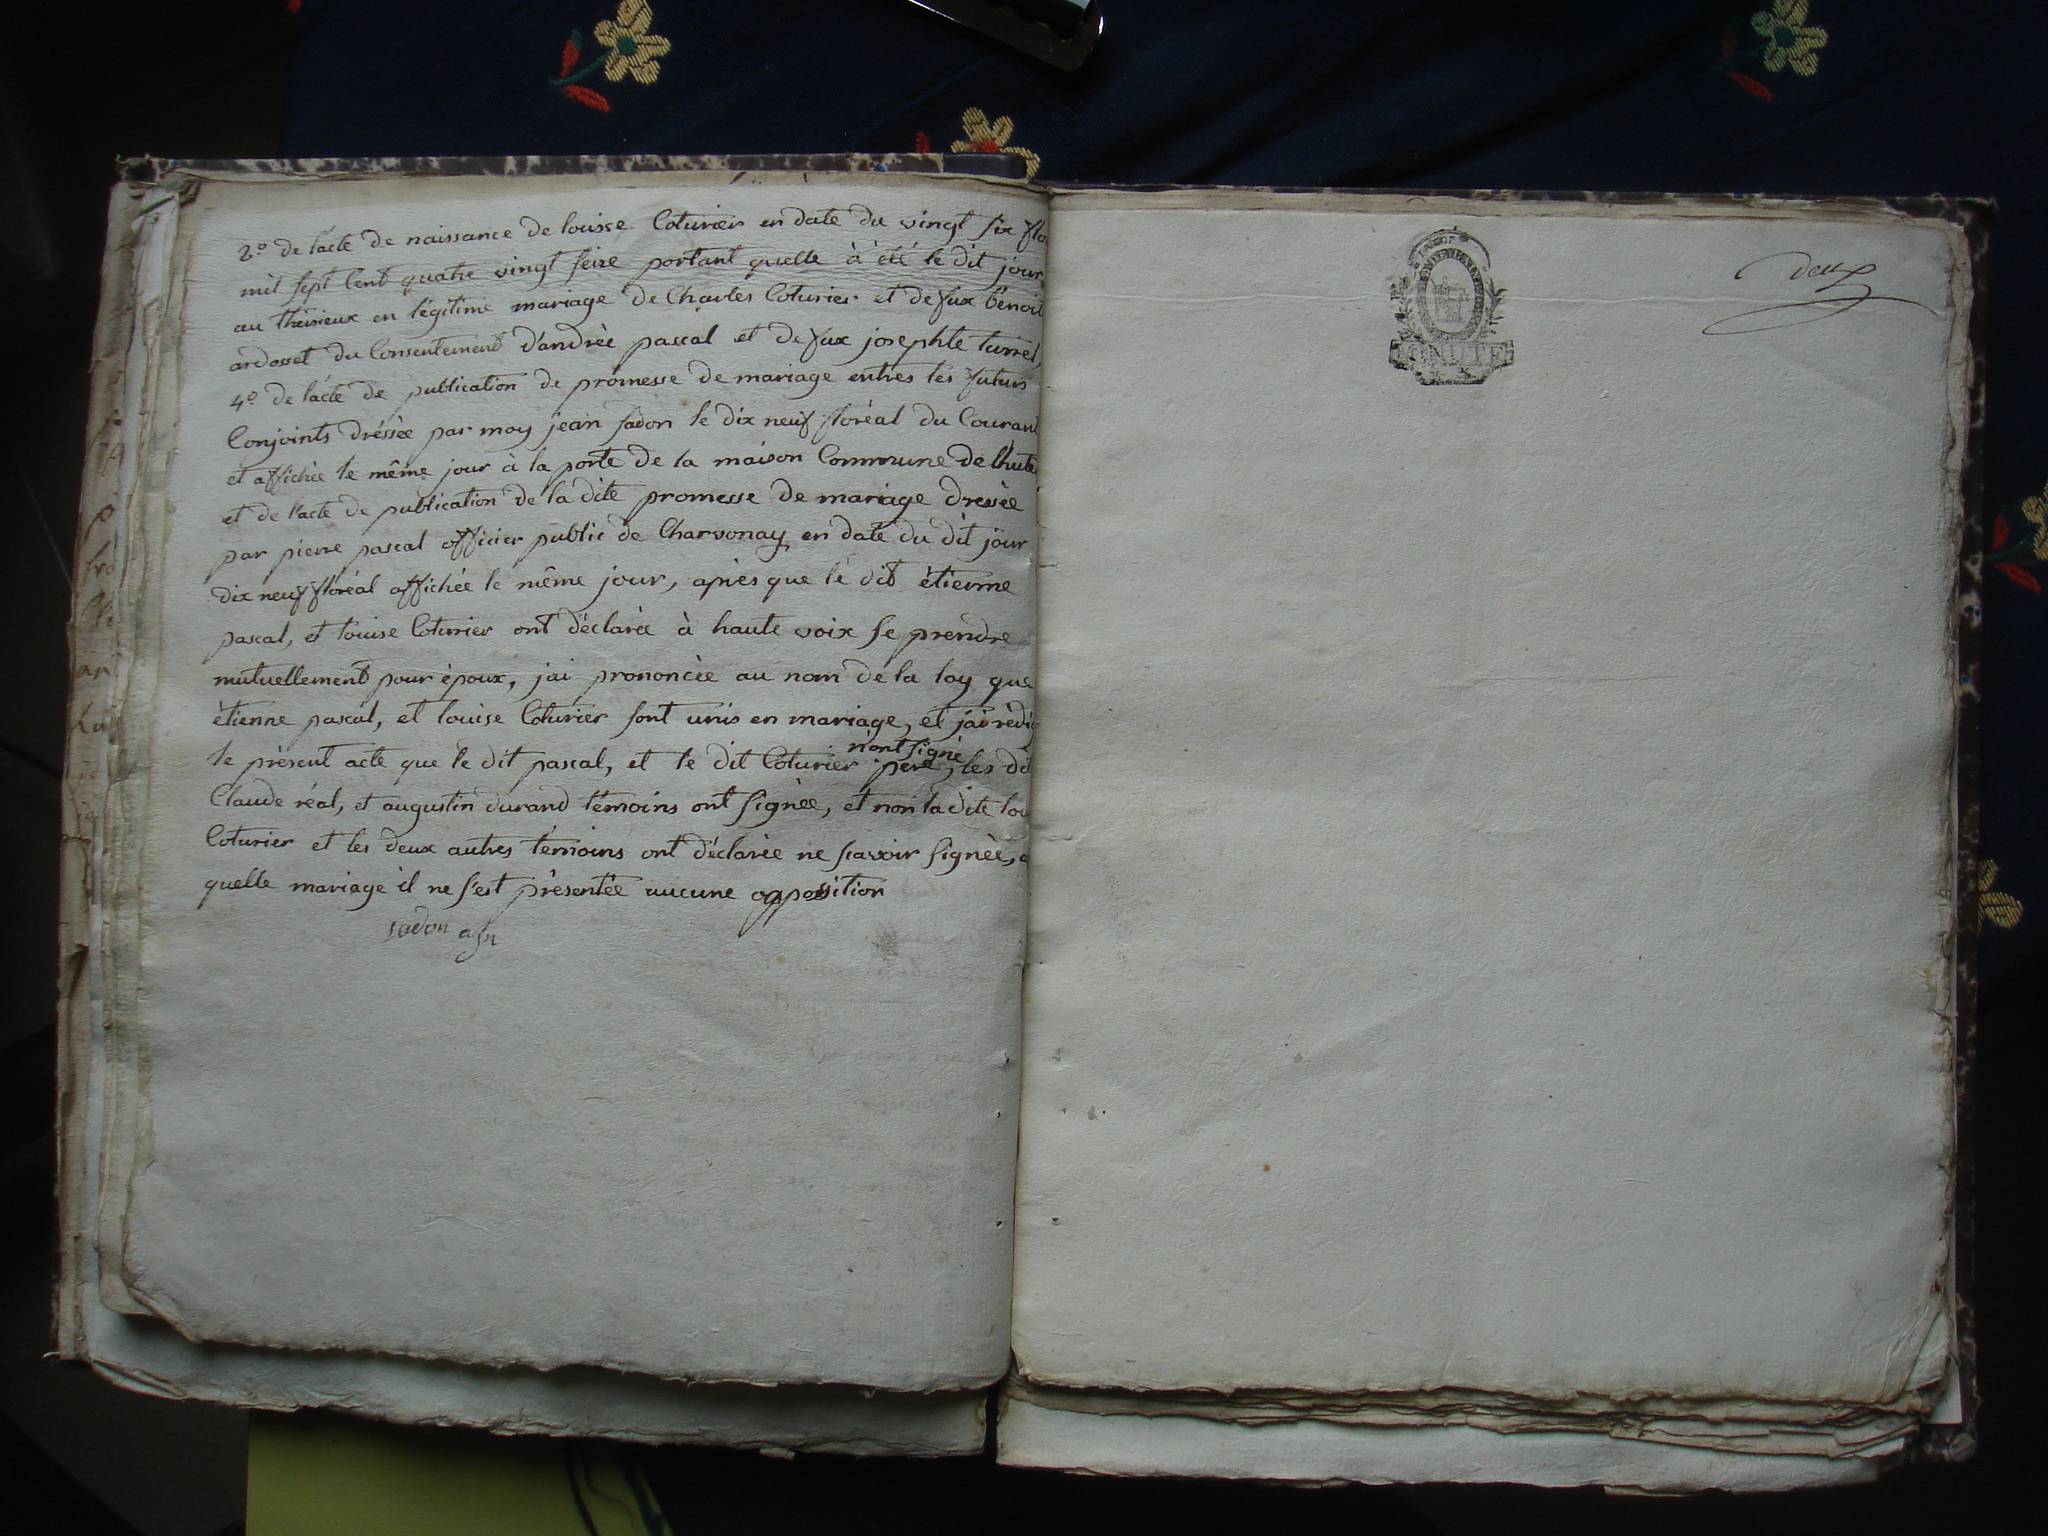 2.o de l'acte de naissance de louise Coturier en date du vingt six
mil sept cent quatre vingt seize portant quelle à été le dit jour
au thésieux en légitime mariage de Charles Coturier et de fux benoit
ardosset du Consentement d'andrée pascal et de fux josephte turrel,
4.o de l'acte de publication de promesse de mariage entres les futurs
Conjoints dréssée par moy jean sadon le dix neuf floréal du Courant
et affichée le même jour à la porte de la maison Commune de
et de l'acte de publication de la dite promesse de mariage dressée
par pierre pascal officier public de Charvonay en date du dit jour
dix neuf floréal affichée le même jour, après que le dit étienne
pascal, et louise Coturier ont déclarée à haute voix se prendre
mutuellement pour époux, j'ai prononcée au nom de la loy que
étienne pascal, et louise Coturier sont unis en mariage, et j'ai rédi
n'ont signé
le présent acte que le dit pascal, et le dit Coturier père, les dit
Claude réal, et augustin durand témoins ont signée, et non la dite lou
Coturier et les deux autres témoins ont déclarée ne scavoir signée, a
quelle mariage il ne s'est présentée aucune opposition
sadon agn
deux